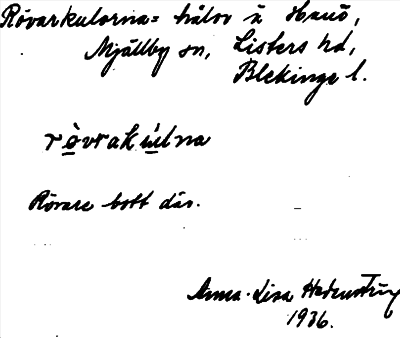 Rövarkulorna = hålor å Hanö,
Mjällby sn, Listers hd,
Blekinge l.
rò̠vrakù̠lna
Rövare bott där.
Anna-Lisa
1936.